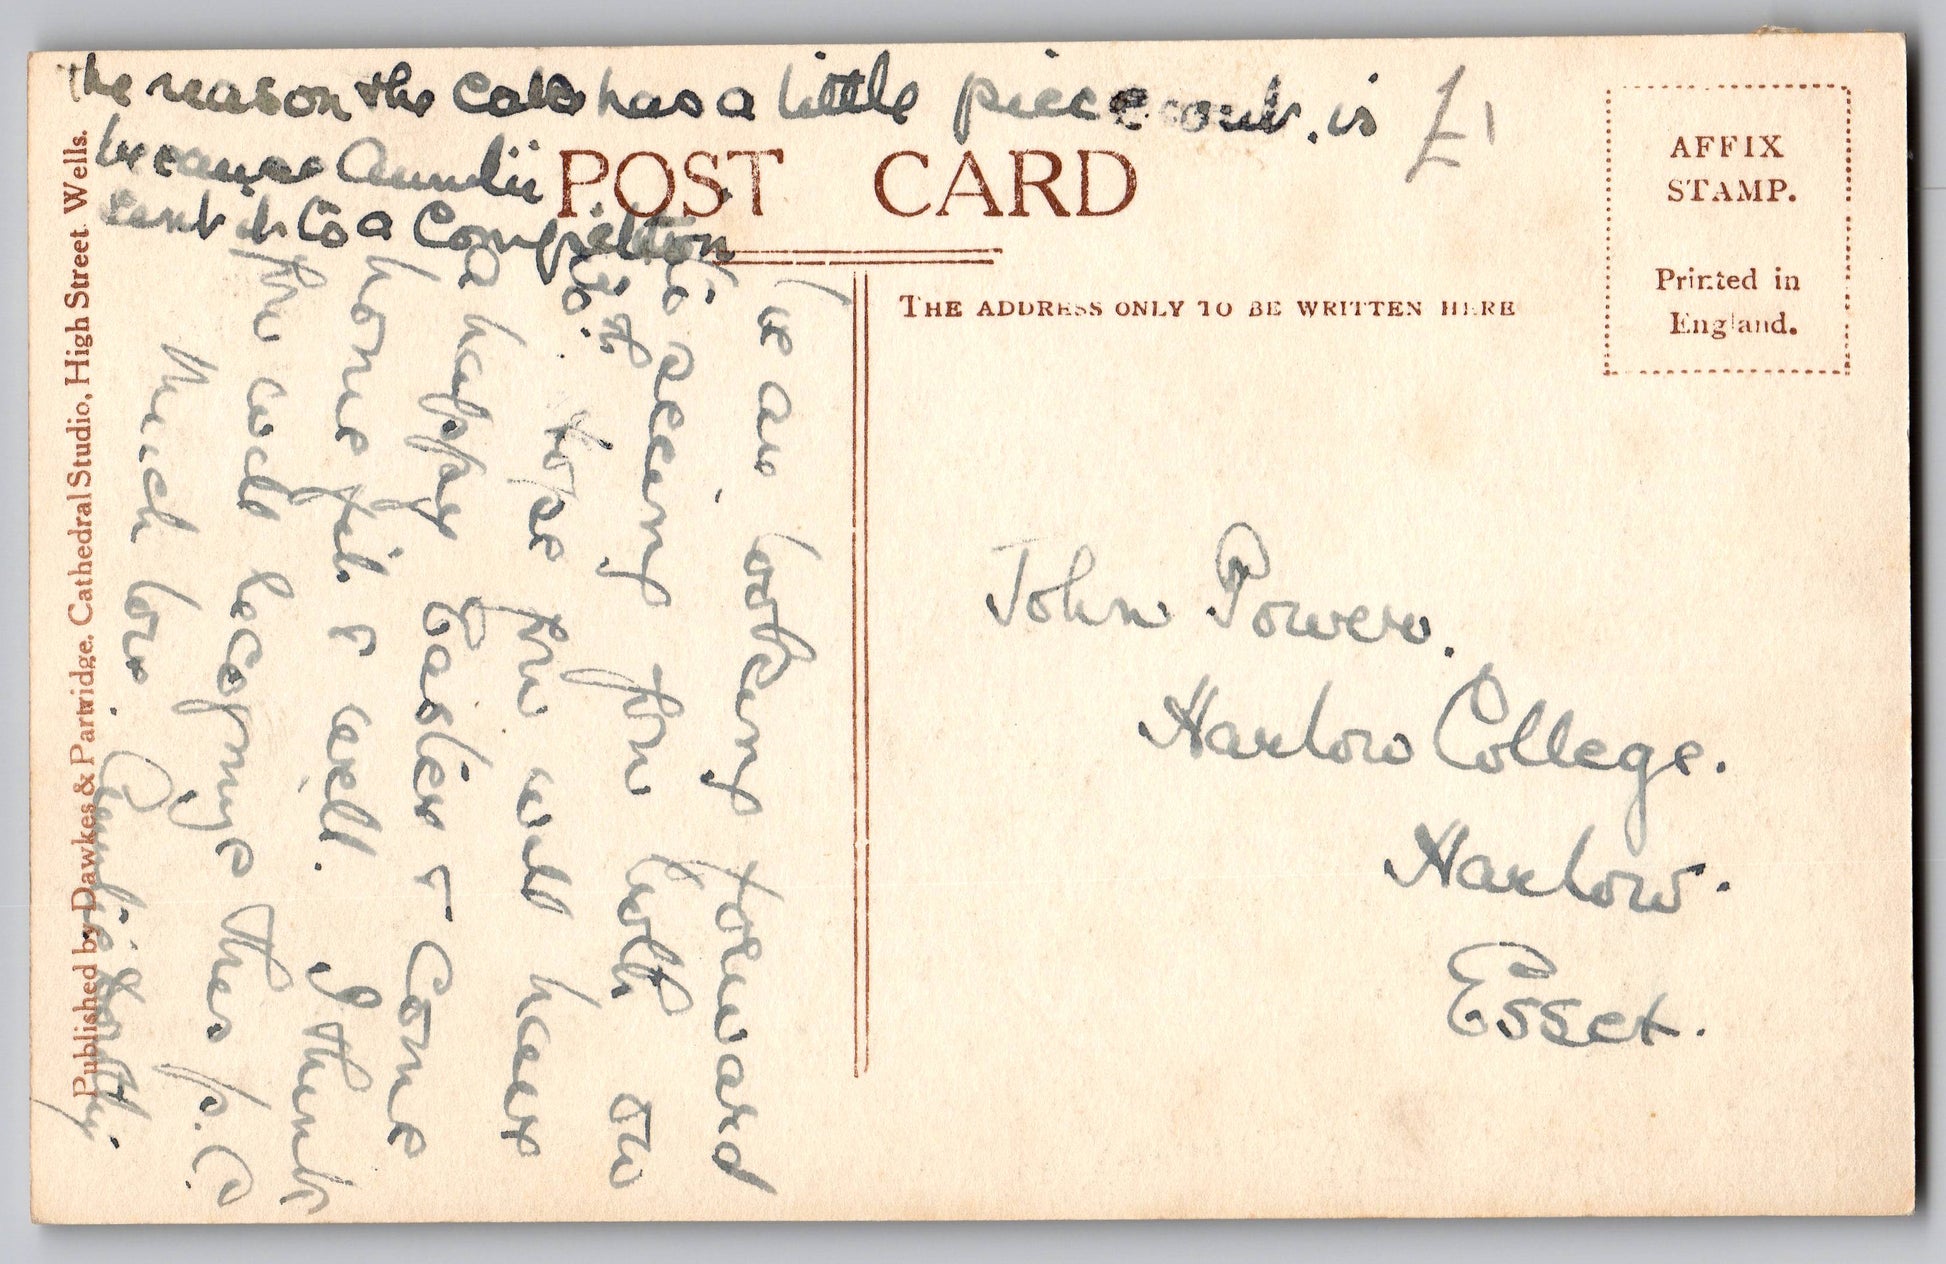 the reason the cats has a little piece out. is
because Auntie
sent it to a Competition
£1
POST CARD
THE ADDRESS ONLY TO BE WRITTEN HERE
AFFIX
STAMP.
Printed in
England.
We are looking forward
to seeing you both on
the
hope you will have
a happy Easter & come
home fit & well. I think
you will recognize this p.c.
Much love. Auntie
John Power.
Harlow College.
Harlow.
Essex.
Published by Dawkes & Partridge, Cathedral Studio, High Street, Wells.